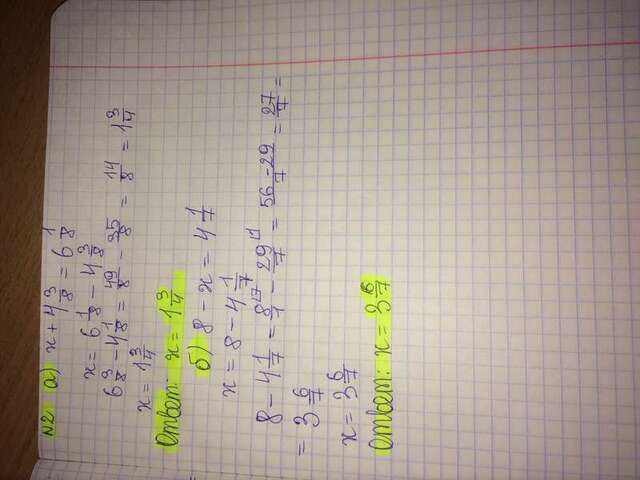 №2 а) x + 4 3/8 = 6 1/8
x = 6 1/8 - 4 3/8
6 3/8 - 4 1/8 = 49/8 - 35/8 = 14/8 = 1 3/4
x = 1 3/4
Ответ: x = 1 3/4
б) 8 - x = 4 1/7
x = 8 - 4 1/7
8 - 4 1/7 = 8/1 - 29/7 = 56-29/7 = 27/7 =
= 3 6/7
x = 3 6/7
Ответ: x = 3 6/7